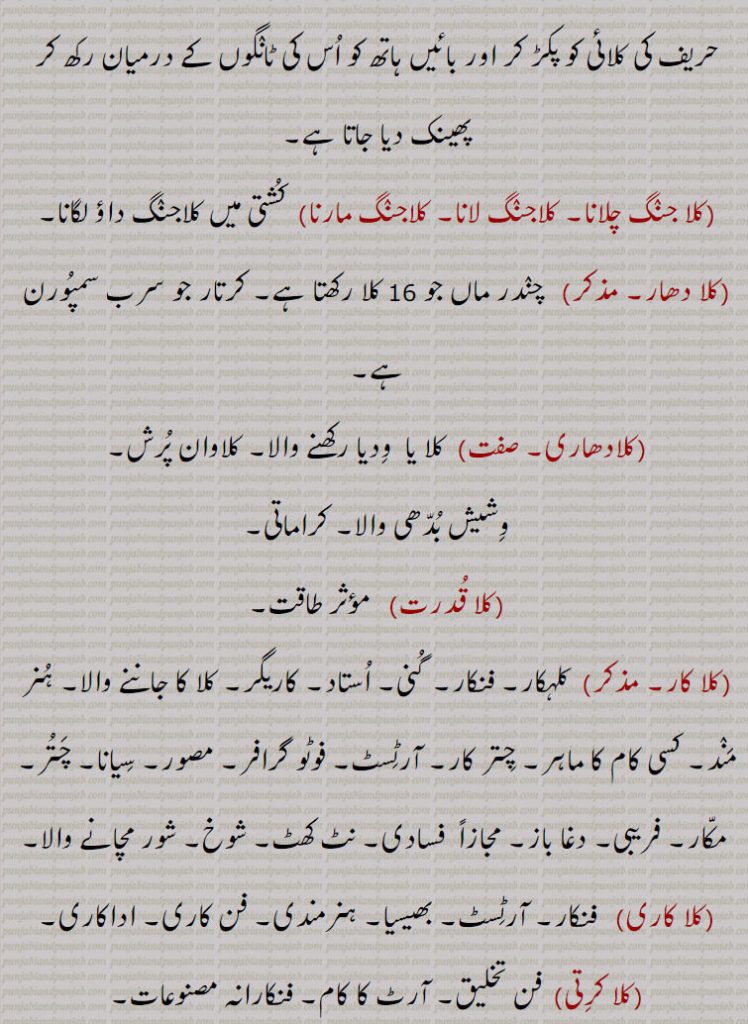 حریف کی کلائی کو پکڑ کر اور بائیں ہاتھ کو اُس کی ٹانگوں کے درمیان رکھ کر
پھینک دیا جاتا ہے۔
(کلا جنْگ چلانا۔ کلاجنْگ لانا۔ کلاجنْگ مارنا) کُشتی میں کلاجنْگ داؤ لگانا۔
(کلا دھار۔ مذکر) چنْدر ماں جو 16 کلا رکھتا ہے۔ کرتار جو سرب سمپُورن
ہے۔
(کلادھاری۔ صفت) کلا یا وِدیا رکھنے والا۔ کلاوان پُرش۔
وِشیش بُدّھی والا۔ کراماتی۔
(کلا قُدرت) مؤثر طاقت۔
(کلا کار۔ مذکر) کلہکار۔ فنکار۔ گُنی۔ اُستاد۔ کاریگر۔ کلا کا جاننے والا۔ ہُنر
مَنْد۔ کسی کام کا ماہر۔ چِتر کار۔ آرٹِسٹ۔ فوٹو گرافر۔ مصور۔ سِیانا۔ چَتُر۔
مکّار۔ فریبی۔ دغا باز۔ مجازاً فسادی۔ نٹ کھٹ۔ شوخ۔ شور مچانے والا۔
(کلا کاری) فنکار۔ آرٹِسٹ۔ بھیسیا۔ ہنرمندی۔ فن کاری۔ اداکاری۔
(کلا کرِتی) فن تخلیق۔ آرٹ کا کام۔ فنکارانہ مصنوعات۔